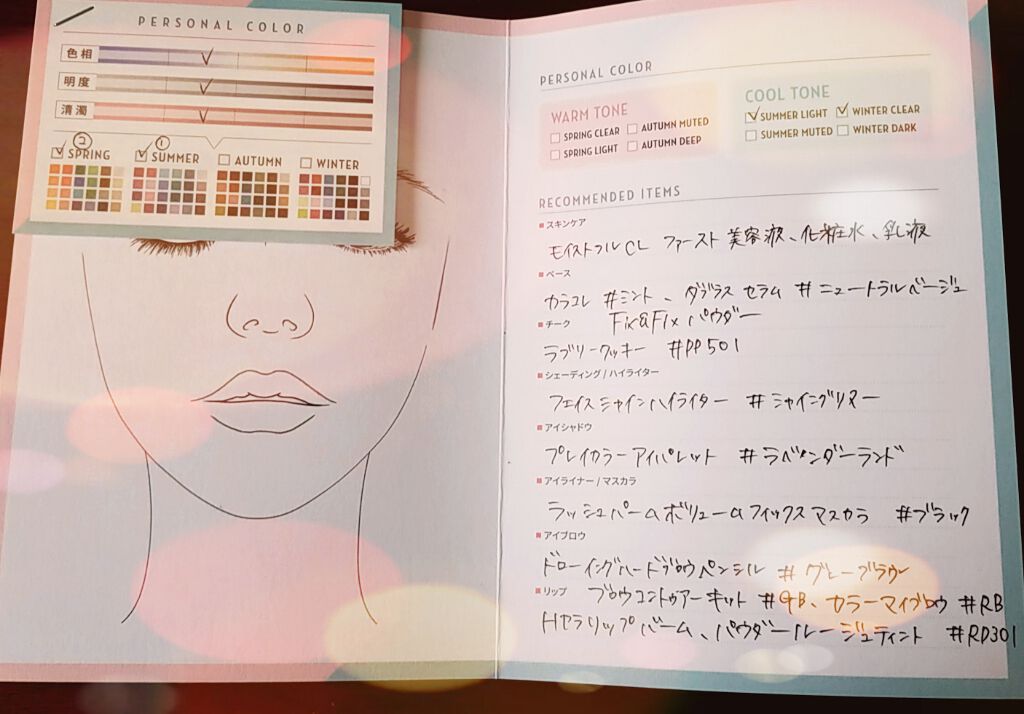 PERSONAL COLOR
色相
明度
清濁
② ①
SPRING SUMMER AUTUMN WINTER
PERSONAL COLOR
WARM TONE
SPRING CLEAR AUTUMN MUTED
SPRING LIGHT AUTUMN DEEP
COOL TONE
SUMMER LIGHT WINTER CLEAR
SUMMER MUTED WINTER DARK
RECOMMENDED ITEMS
スキンケア
モイストフルCL ファースト美容液、化粧水、乳液
ベース
カラコレ #ミント、ダブラス セラム #ニュートラルベージュ
Fix&Fix パウダー
チーク
ラブリークッキー #PP501
シェーディング / ハイライター
フェイスシャインハイライター #シャイングリヌー
アイシャドウ
プレイカラーアイパレット #ラベンダーランド
アイライナー / マスカラ
ラッシュパームボリュームフィックスマスカラ #ブラック
アイブロウ
ドローイングハードブロウペンシル #グレーブラウン
ブロウコントゥアーキット #GB、カラーマイブロウ #RB
リップ
Hセラリップバーム、パウダールージュティント #RD301